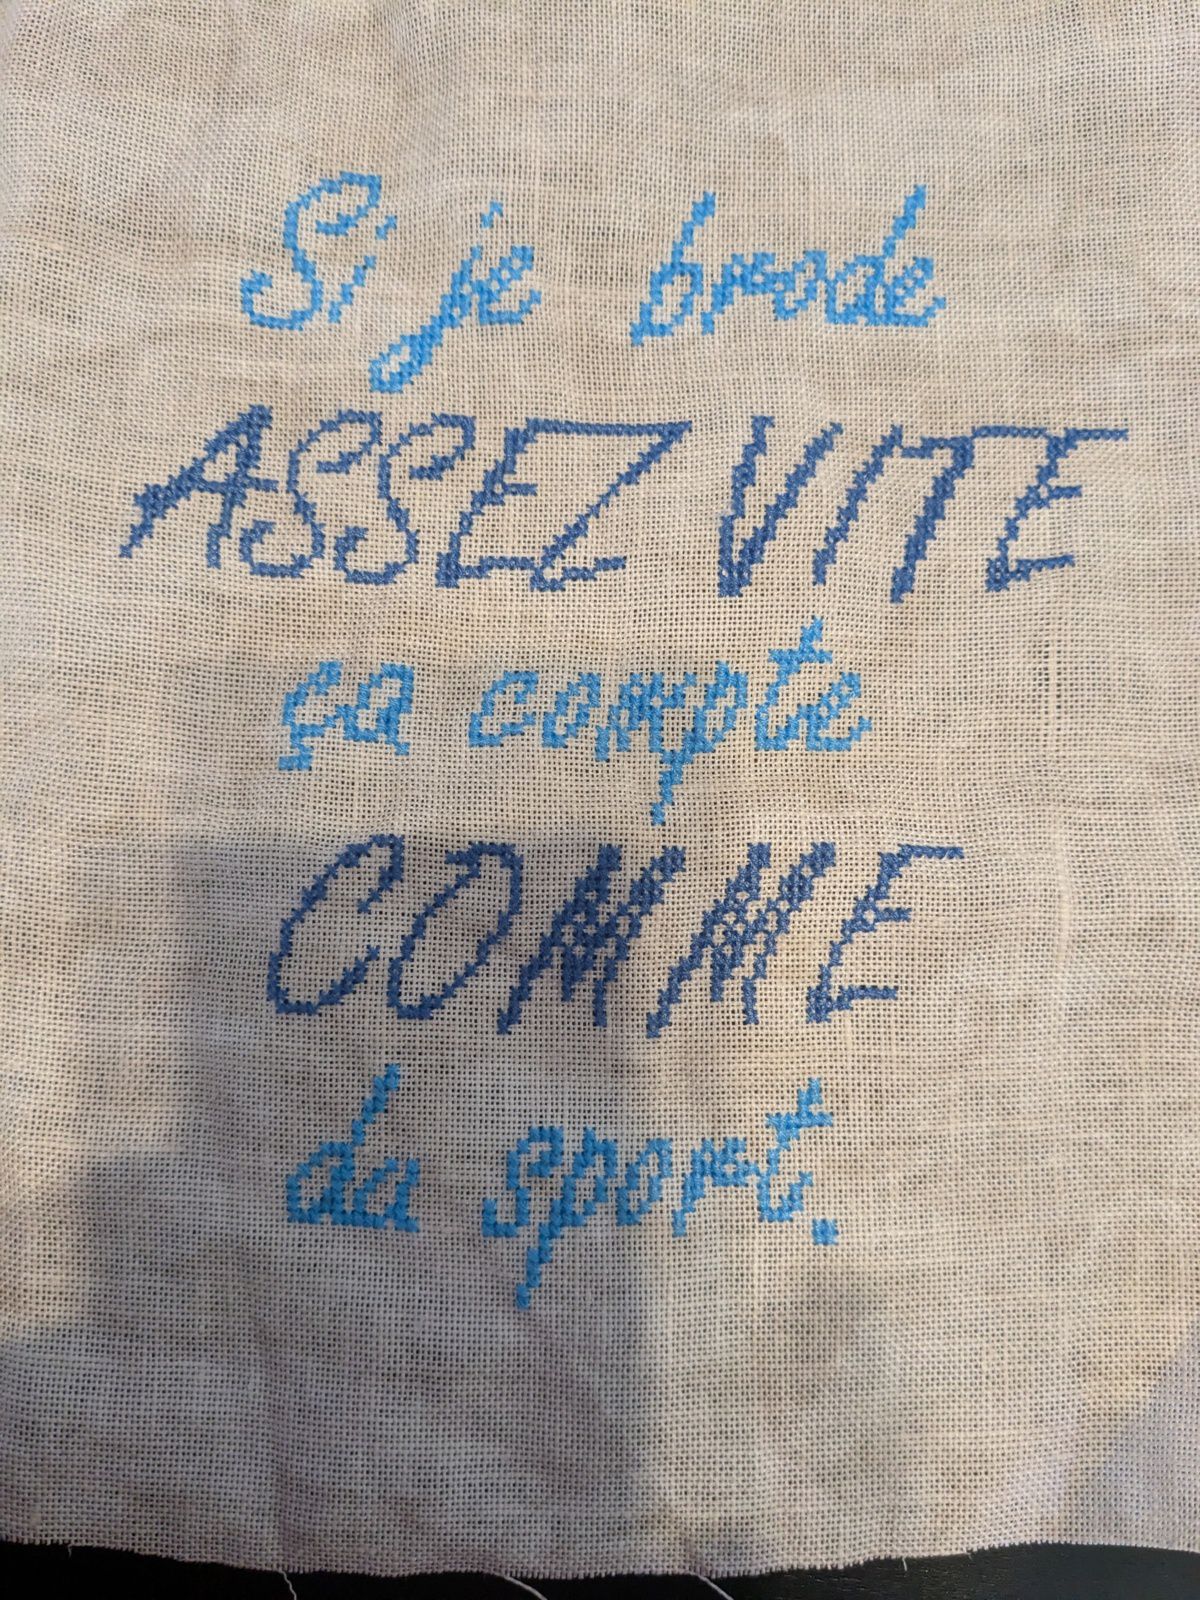 Si je brode
ASSEZ VITE
ça compte
COMME
du sport.